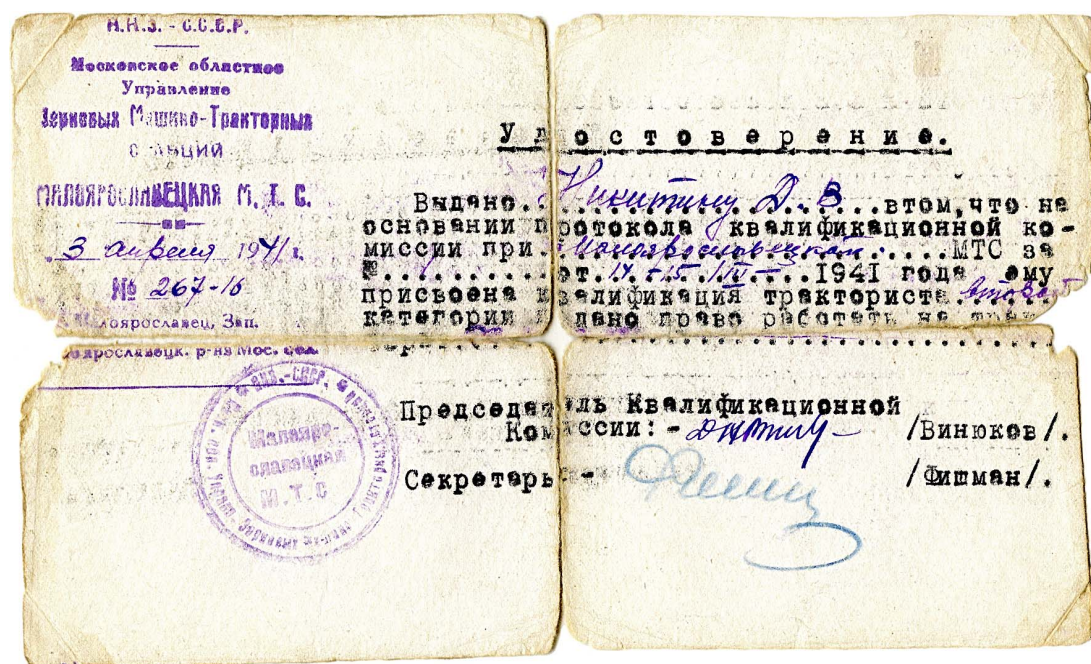 Н.К.З. - С.С.С.Р.
Московское областное
Управление
Зерновых Машино-Тракторных
С АНЦИЙ
МАЛОЯРОСЛАВЕЦКАЯ М. Т. С.
3 апреля 1941 г.
№ 267-16
лоярославец, Зап.
ярославецк. р-на Мос. обл.
Удостоверение.
Выдано Никитину Д. В втом, что на
основании протокола квалификационной ко-
миссии при Малоярославецкой МТС за
№ от 14-15/III- 1941 года ему
присвоена квалификация тракториста второй
категории дано право работать на трак
Председатель Квалификационной
Комиссии: - /Винюков/.
Секретарь - /Фишман/.
Малояро-
славецкая
М. Т. С